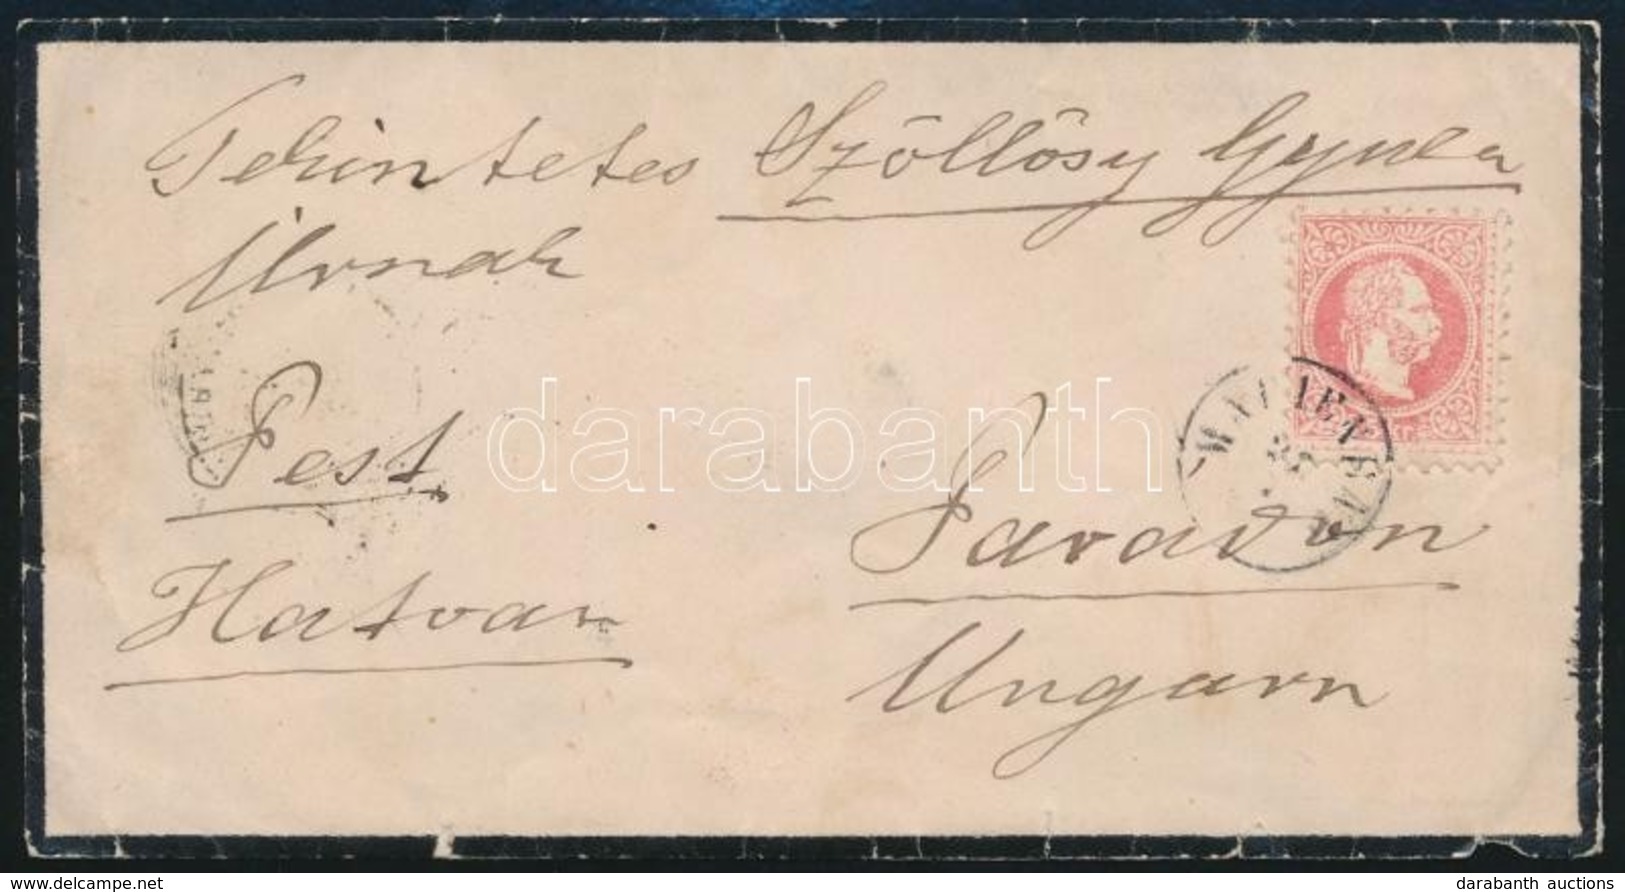 Tekintetes Szöllősy Gyula
Úrnak
Pest
Hatvan
Paradon
Ungarn
darabanth
darabanth auctions
www.delcampe.net